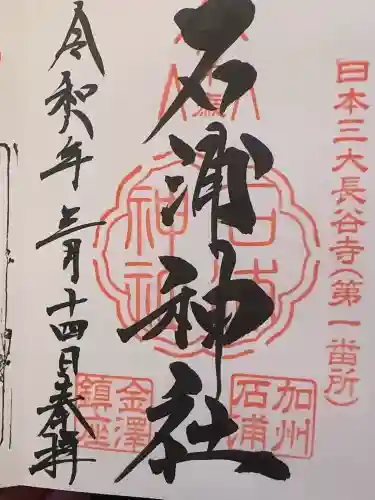 日本三大長谷寺(第一番所)
石浦神社
石浦
神社
加州
石浦
金澤
鎮座
令和八年三月十四日奉拝